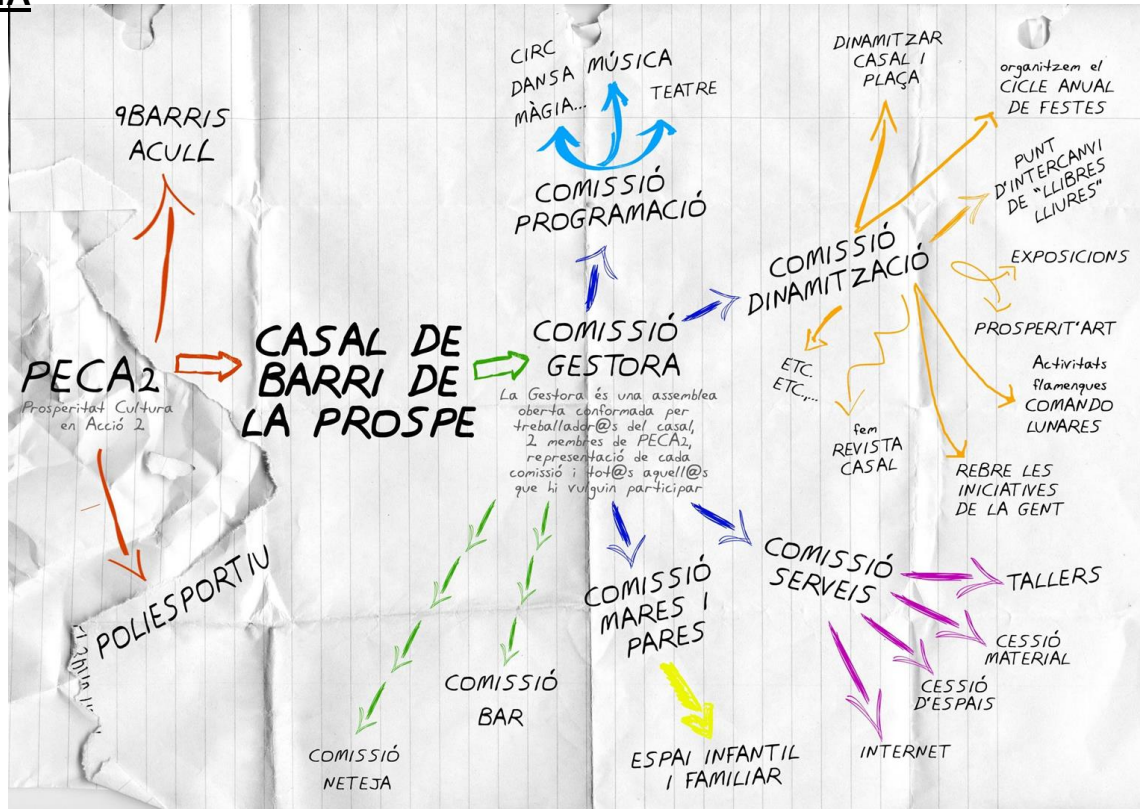 9BARRIS
ACULL
PECA2
Prosperitat Cultura
en Acció 2
POLIESPORTIU
CASAL DE
BARRI DE
LA PROSPE
COMISSIÓ
GESTORA
La Gestora és una assemblea
oberta conformada per
treballador@s del casal,
2 membres de PECA2,
representació de cada
comissió i tot@s aquell@s
que hi vulguin participar
CIRC
DANSA
MÀGIA...
MÚSICA
TEATRE
COMISSIÓ
PROGRAMACIÓ
COMISSIÓ
DINAMITZACIÓ
DINAMITZAR
CASAL I
PLAÇA
organitzem el
CICLE ANUAL
DE FESTES
PUNT
D'INTERCANVI
DE "LLIBRES
LLIURES"
EXPOSICIONS
PROSPERIT'ART
Activitats
flamenques
COMANDO
LUNARES
REBRE LES
INICIATIVES
DE LA GENT
fem
REVISTA
CASAL
ETC.
ETC,...
COMISSIÓ
SERVEIS
TALLERS
CESSIÓ
MATERIAL
CESSIÓ
D'ESPAIS
INTERNET
COMISSIÓ
MARES I
PARES
ESPAI INFANTIL
I FAMILIAR
COMISSIÓ
BAR
COMISSIÓ
NETEJA